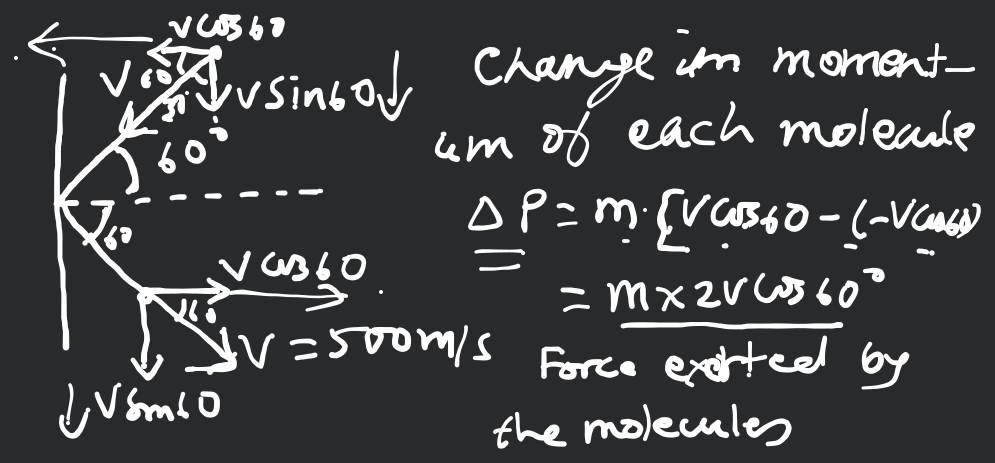 Vcos60
V 60
Vsin60
60°
60
Vcos60
60
V = 500m/s
Vsin60
Change in moment-
um of each molecule
ΔP = m·[Vcos60 - (-Vcos60)
= m×2Vcos60°
Force exerted by
the molecules